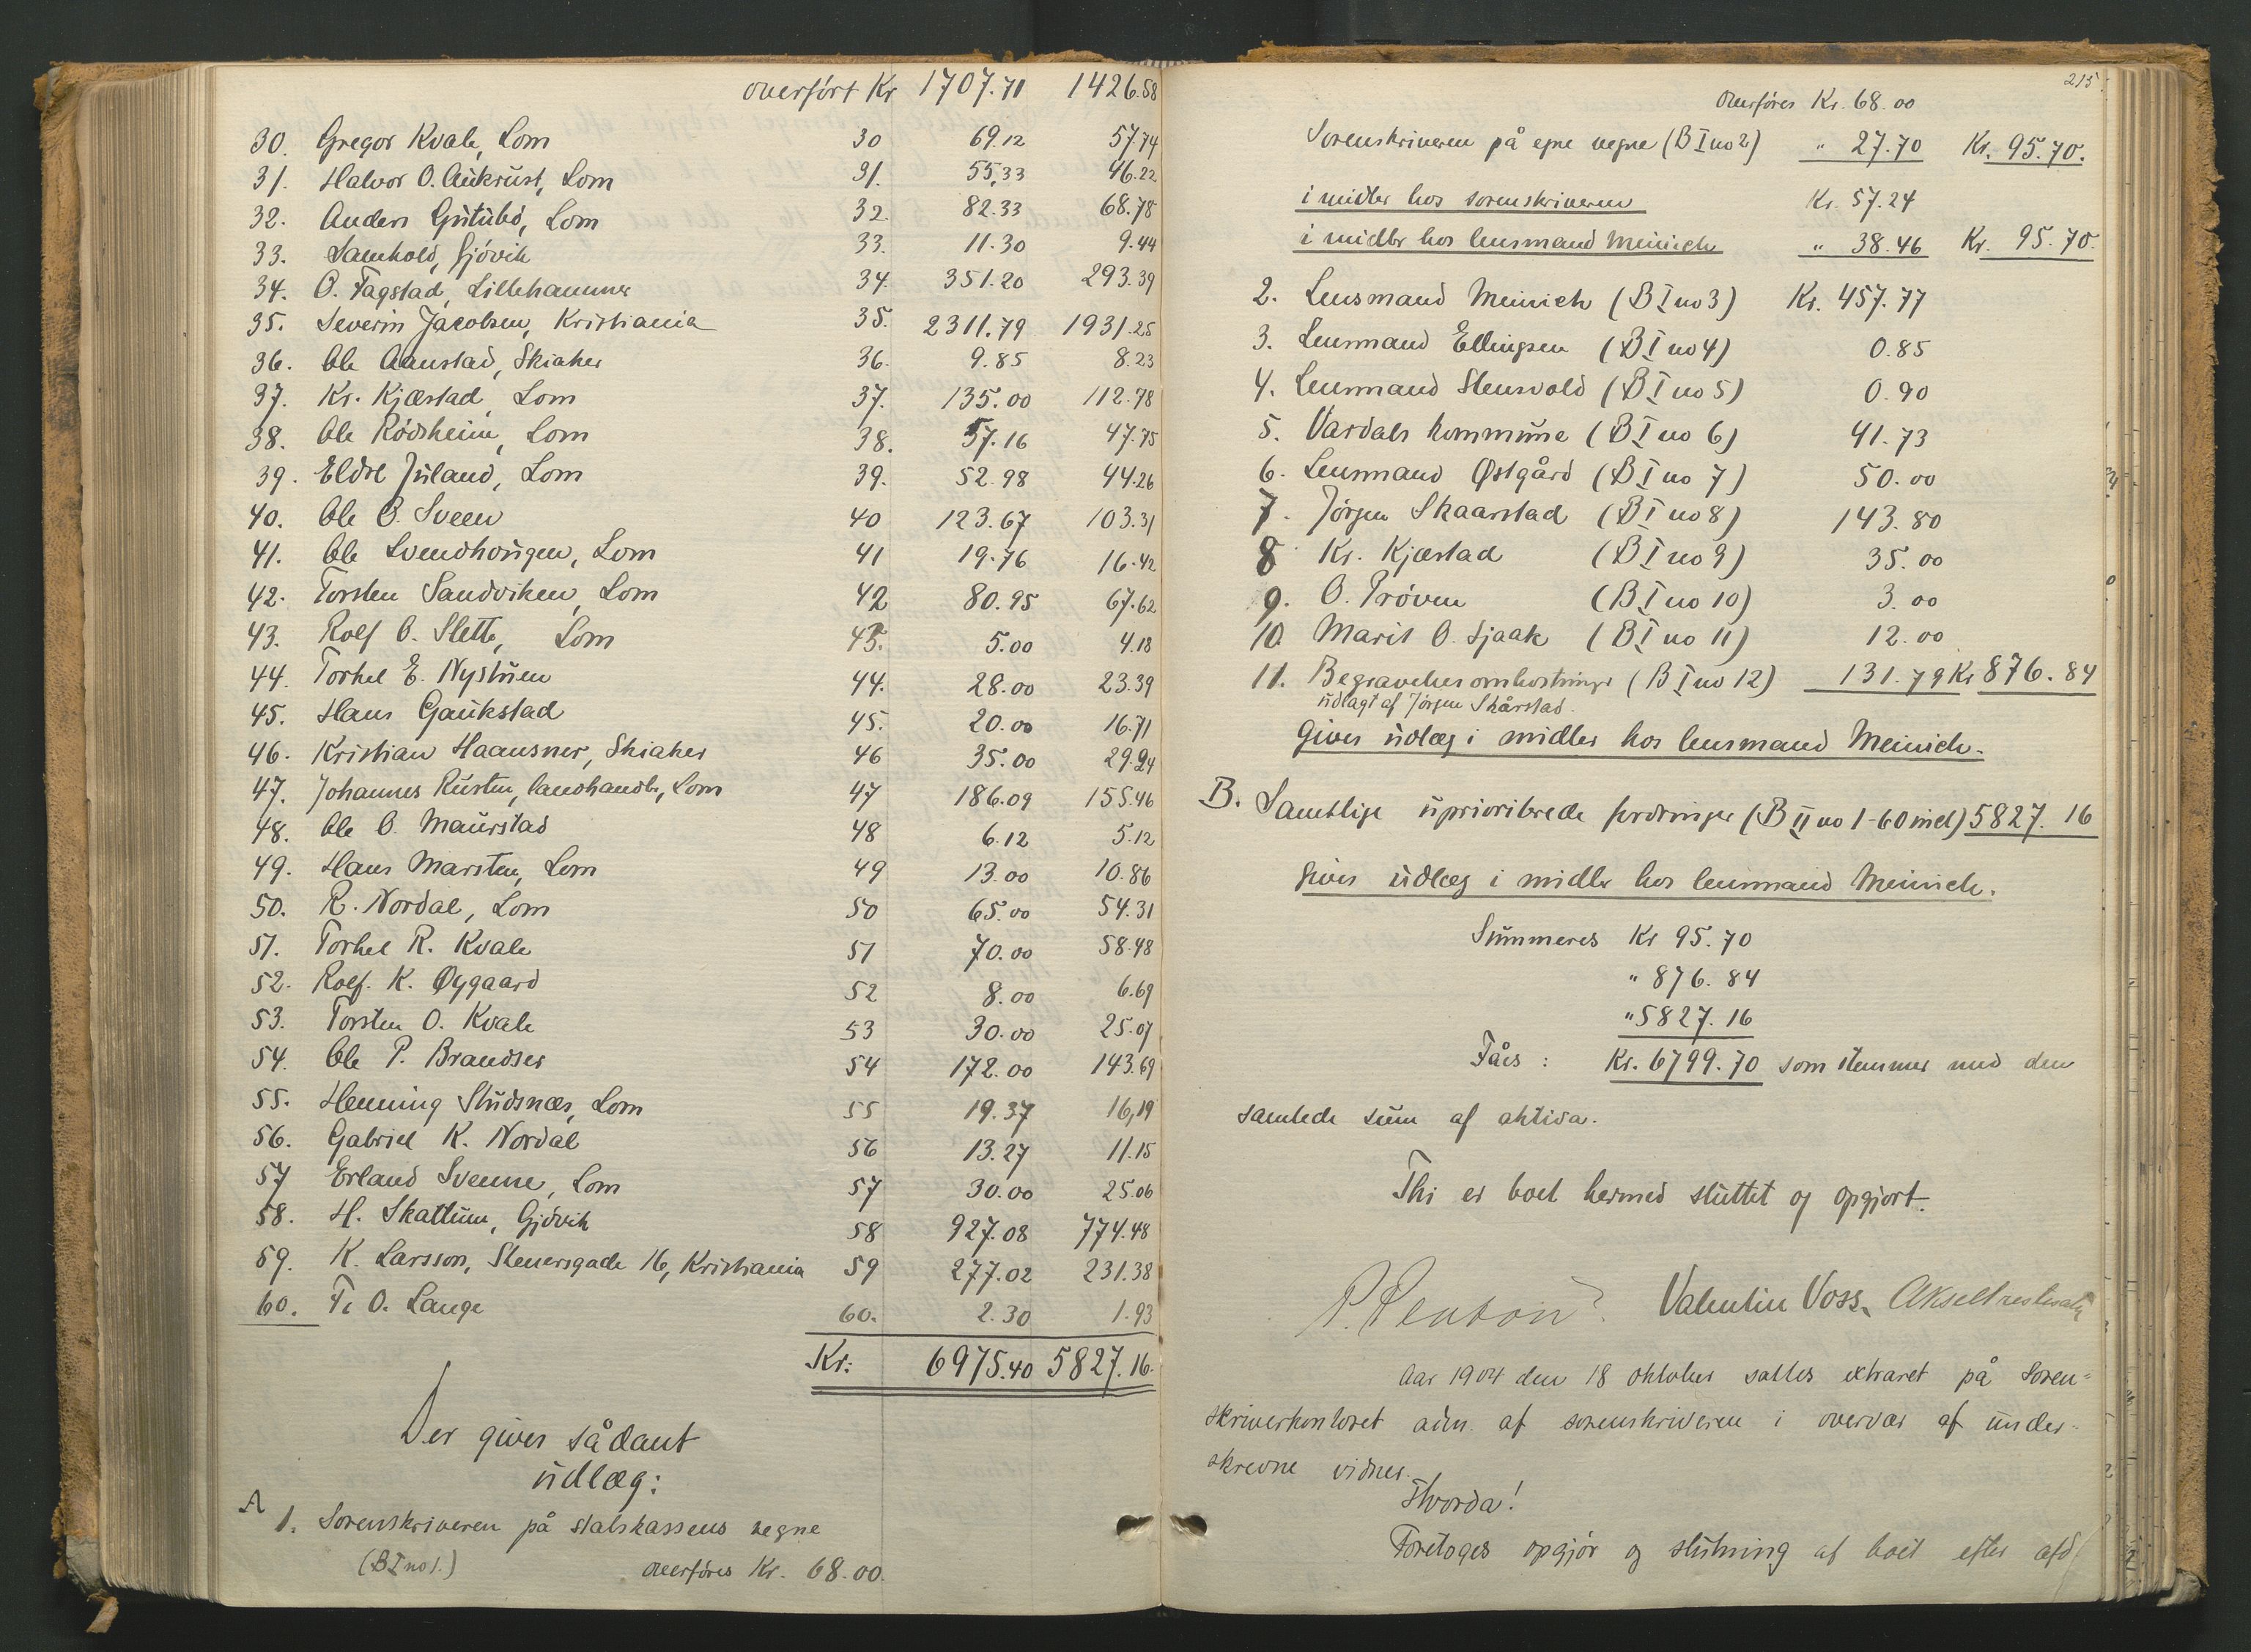 overført Kr 1707.71 1426.58
30. Gregor Kvale, Lom 30 69.12 57.74
31. Halvor O. Aukrust, Lom 31. 55,33 46.22
32. Anders Gutubø, Lom 32 82.33 68.78
33. Lamhold, Gjøvik 33. 11.30 9.44
34. O. Fagstad, Lillehammer 34. 351.20 293.39
35. Severin Jacobsen, Kristiania 35. 2311.79 1931.25
36. Ole Aanstad, Skiaker 36. 9.85 8.23
37. Kr. Kjæstad, Lom 37. 135.00 112.78
38. Ole Rødsheim, Lom 38. 57.16 47.75
39. Eldre Juland, Lom 39. 52.98 44.26
40. Ole O. Sveen 40 123.67 103.31
41. Ole Svendhougen, Lom 41 19.76 16.42
42. Torsten Sandviken, Lom 42 80.95 67.62
43. Rolf O. Slette, Lom 43. 5.00 4.18
44. Torkel E. Nystuen 44. 28.00 23.39
45. Hans Gaukstad 45. 20.00 16.71
46. Kristian Haansnes, Skiaker 46 35.00 29.24
47. Johannes Rusten, landhandler, Lom 47 186.09 155.46
48. Ole O. Maurstad 48 6.12 5.12
49. Hans Marsten, Lom 49 13.00 10.86
50. R. Nordal, Lom 50 65.00 54.31
51. Torkel R. Kvale 51 70.00 58.48
52. Rolf. K. Øygaard 52 8.00 6.69
53. Torsten O. Kvale 53 30.00 25.07
54. Ole P. Brandser 54 172.00 143.69
55. Henning Studsnæs, Lom 55 19.37 16,19
56. Gabriel K. Nordal 56 13.27 11.15
57 Erland Svenne, Lom 57 30.00 25.06
58. H. Skattum, Gjøvik 58 927.08 774.48
59. K. Larsson, Stenersgade 16, Kristiania 59 277.02 231.38
60. Th. O. Lange 60. 2.30 1.93
Kr: 6975.40 5827.16.
Der gives sådant
udlæg:
A
1. Sorenskriveren på statskassens vegne
(B I no 1.) overføres Kr. 68.00.
215.
Overføres Kr. 68.00
Sorenskriveren på egne vegne (B I no 2) " 27.70 Kr. 95.70.
i midler hos sorenskriveren Kr. 57.24
i midler hos lensmand Meinich " 38.46 Kr. 95.70.
2. Lensmand Meinich (B I no 3) Kr. 457.77
3. Lensmand Ellingsen (B I no 4) 0.85
4. Lensmand Stensvold (B I no 5) 0.90
5. Vardals kommune (B I no 6) 41.73
6. Lensmand Østgård (B I no 7) 50.00
7. Jørgen Skaarstad (B I no 8) 143.80
8 Kr. Kjæstad (B I no 9) 35.00
9. O. Prøven (B I no 10) 3.00
10. Marit O. Sjaak (B I no 11) 12.00
11. Begravelsesomkostninger (B I no 12) 131.79 Kr 876.84
udlagt af Jørgen Skårstad.
Gives udlæg i midler hos lensmand Meinich.
B. Samtlige uprioriterede fordringer (B II no 1-60 incl) 5827.16
gives udlæg i midler hos lensmand Meinich.
Summeres Kr 95.70
" 876.84
" 5827.16
Fåes : Kr. 6799.70 som stemmer med den
samlede sum af aktiva.
Thi er boet hermed sluttet og opgjort.
Valentin Voss.
Aar 1904 den 18 oktober sattes extraret på Soren=
skriverkontoret adm. af sorenskriveren i overvær af under-
skrevne vidner.
Hvorda!
Foretoges opgjør og slutning af boet efter afd